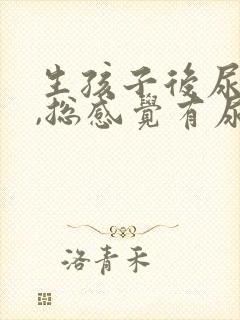 生孩子後尿
,總感覺有尿
洛青禾